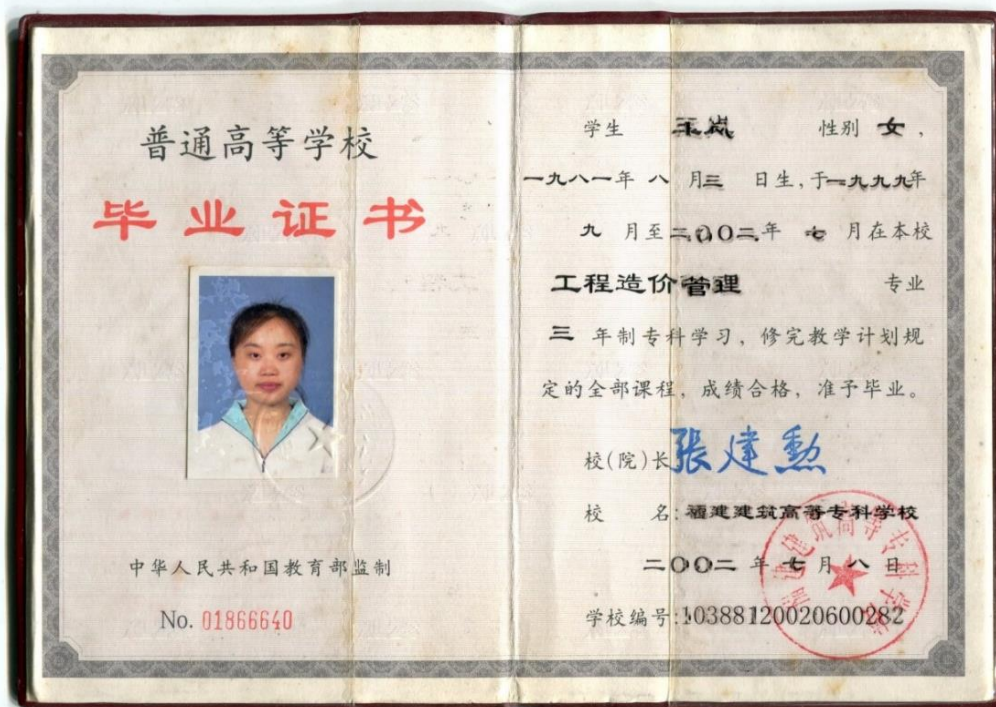 普通高等学校
毕业证书
中华人民共和国教育部监制
No. 01866640
学生 王岚 性别 女,
一九八一年 八 月三 日生,于一九九九年
九 月至二〇〇二年 七 月在本校
工程造价管理 专业
三 年制专科学习,修完教学计划规
定的全部课程,成绩合格,准予毕业。
校(院)长 张建勲
校 名:福建建筑高等专科学校
二〇〇二年七月八日
学校编号:10388120020600282
福建建筑高等专科学校